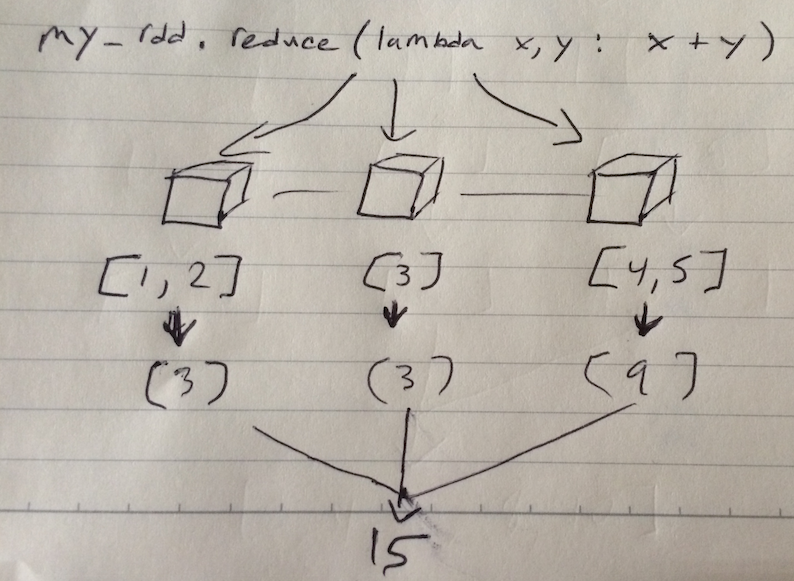 my_rdd.reduce(lambda x,y: x + y)
[1,2] [3] [4,5]
[3] [3] [9]
15